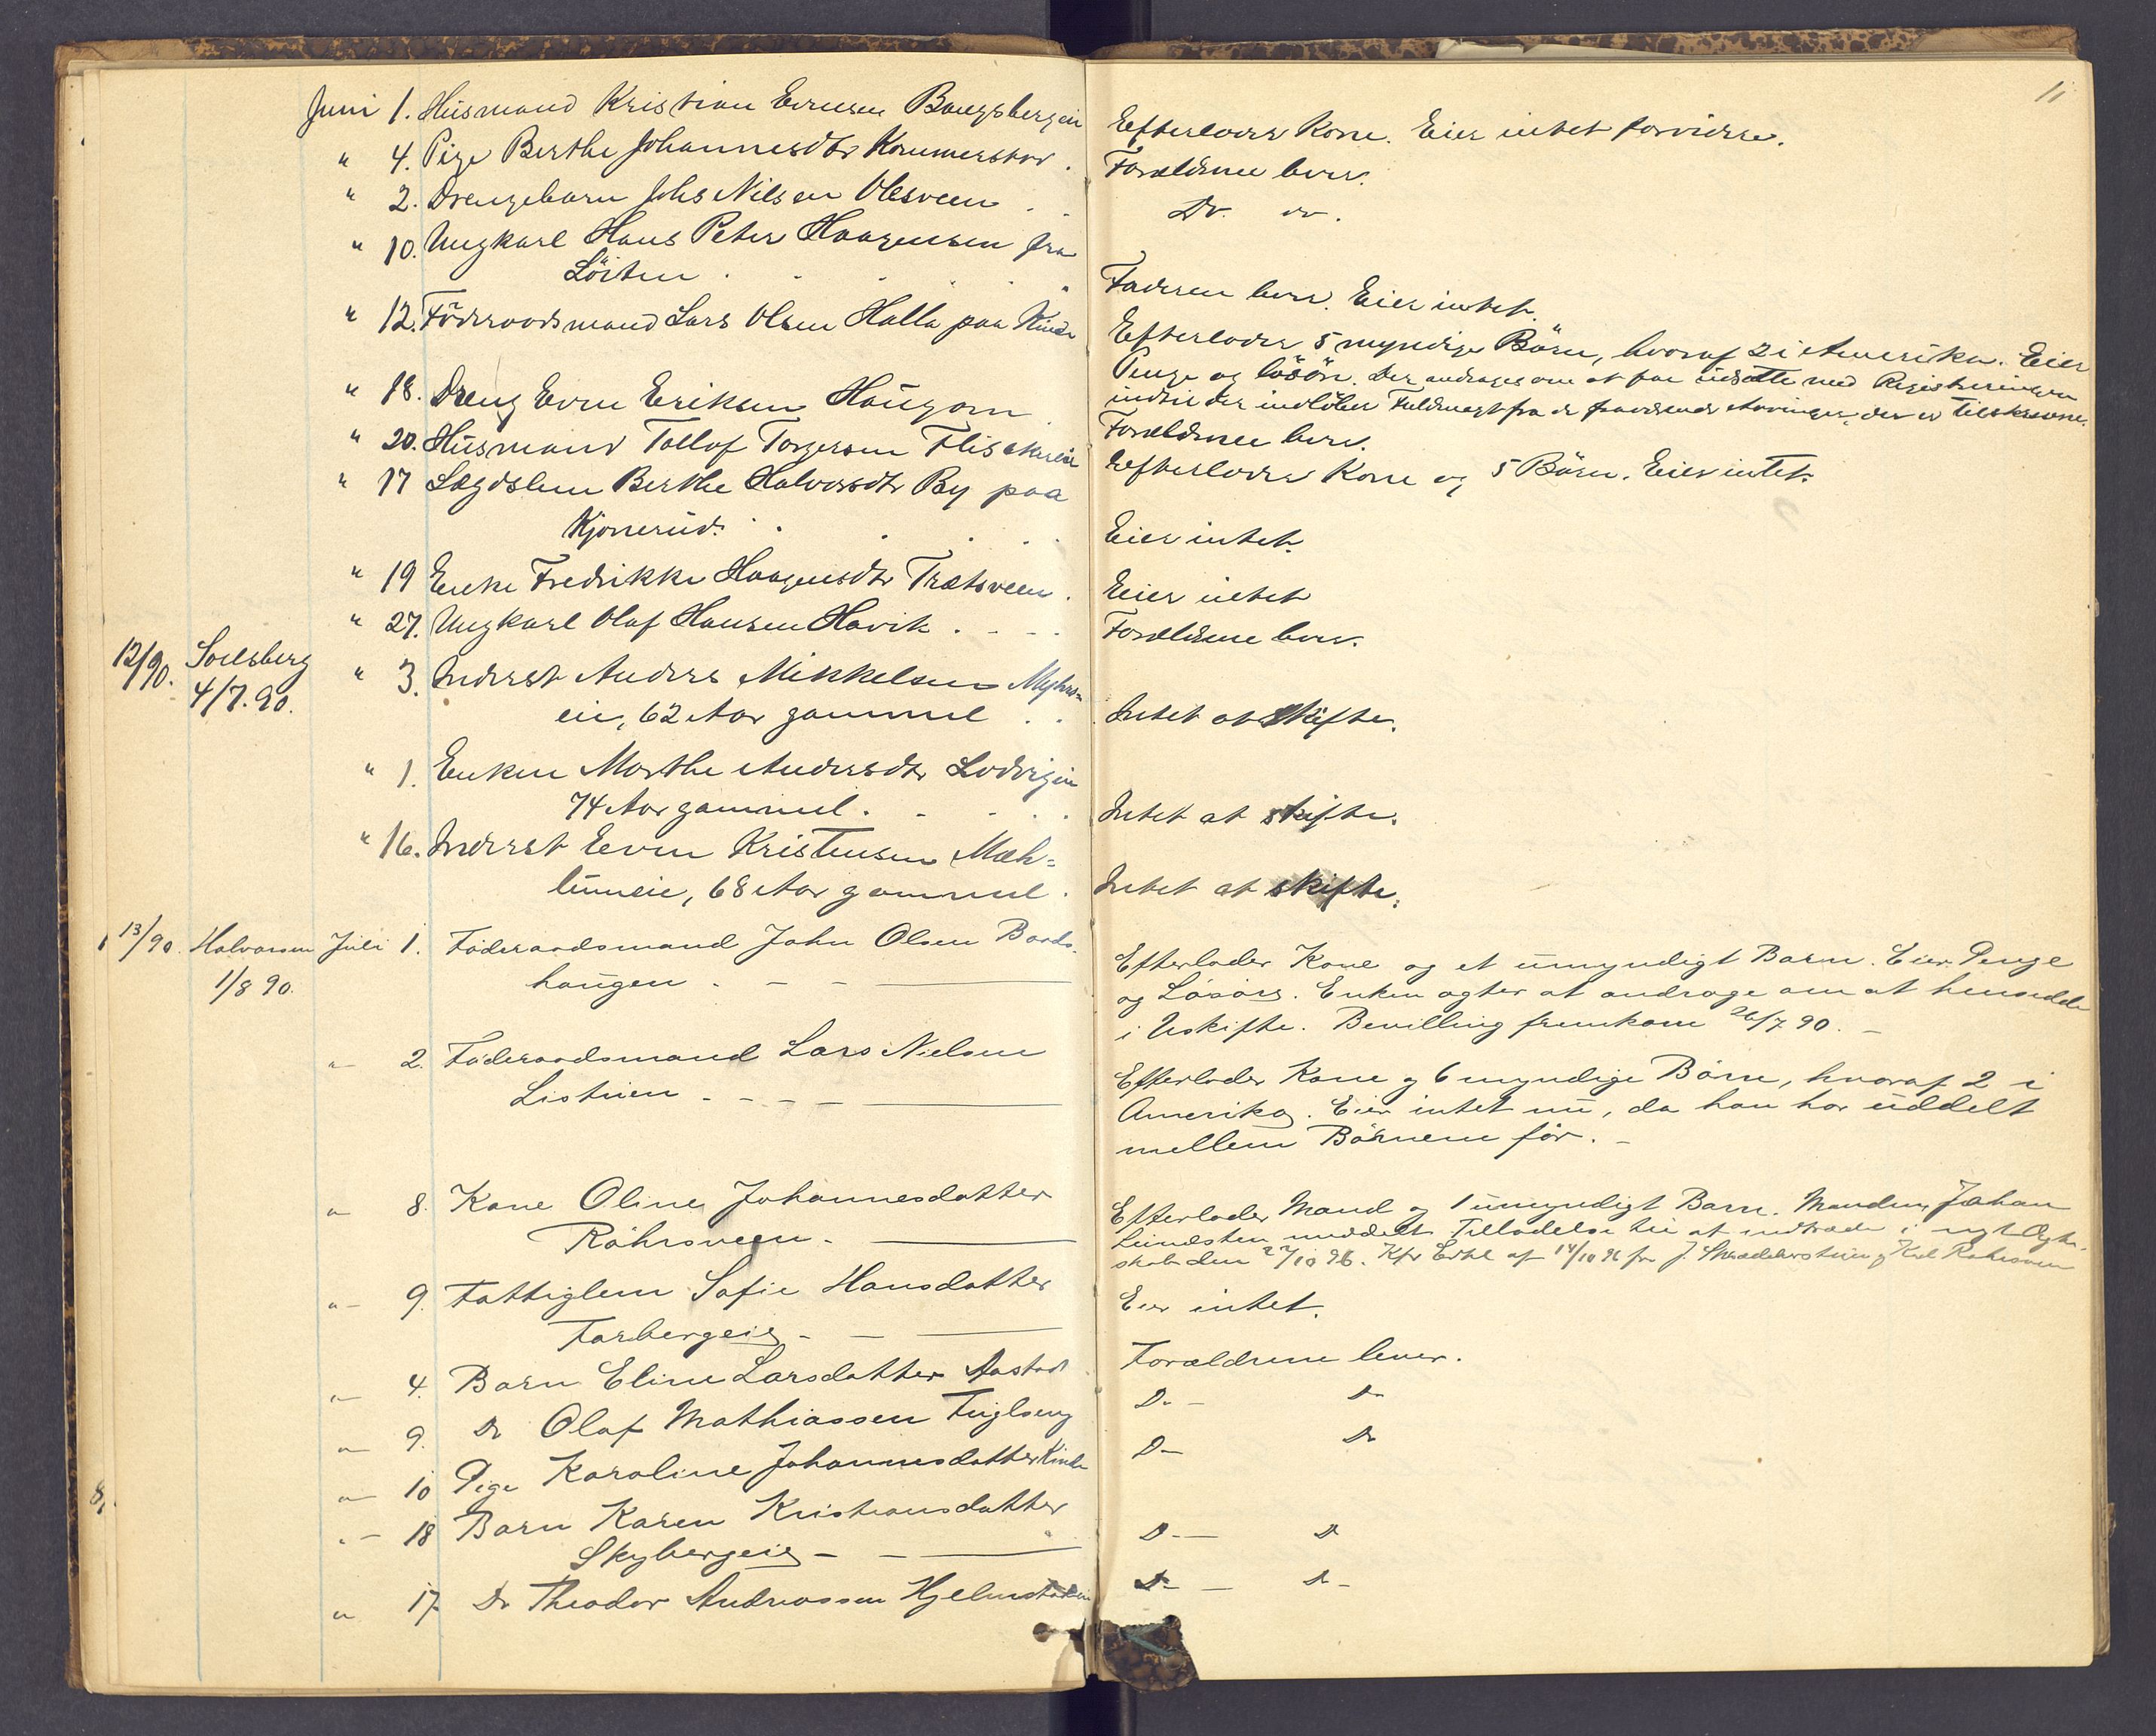 11
Juni 1. Husmand Kristian Evensen Bangsbergeie
Efterlader Kone. Eier intet forvidere.
" 4. Pige Berthe Johannesdtr Kommerstad.
Forældrene lever.
" 2. Drengebarn Johs Nilsen Olesveen
Do. do.
" 10. Ungkarl Hans Peter Haagensen fra
Löiten
Faderen lever. Eier intet.
" 12. Föderaadsmand Lars Olsen Halla paa Kinde
Efterlader 5 myndige Börn, hvoraf 2 i Amerika. Eier
Penge og lösöre. Der andrages om at faa udsætte med Registreringen
indtil der indlöber Fuldmagt fra de fraværende Arvinger, der er tilskrevne.
" 18. Dreng Even Eriksen Haugom
Forældrene lever.
" 20. Husmand Tollof Torgersen Flisakereie
Efterlader Kone og 5 Börn. Eier intet.
" 17 Lægdslem Berthe Halvorsdtr By paa
Kjonerud.
Eier intet.
" 19 Enke Fredrikke Haagensdtr Trætsveen.
Eier intet
" 27. Ungkarl Olaf Hansen Havik
Forældrene lever.
12/90. Soelsberg " 3. Inderst Anders Mikkelsen Myhrs-
4/7.90. eie, 62 Aar gammel
Intet at skifte.
" 1. Enken Marthe Andersdtr Lodvigeie
74 Aar gammel.
Intet at skifte.
" 16. Inderst Even Kristensen Mæh=
lumeie, 68 Aar gammel.
Intet at skifte.
13/90. Halvorsen Juli 1. Föderaadsmand John Olsen Baads-
1/8 90. haugen
Efterlader Kone og et umyndigt Barn. Eier Penge
og Lösöre. Enken agter at andrage om at hensidde
i Uskifte. Bevilling fremkom 26/7 90.
" 2. Föderaadsmand Lars Nielsen
Listuen
Efterlader Kone og 6 myndige Börn, hvoraf 2 i
Amerika. Eier intet nu, da han har uddelt
mellem Börnene för.
" 8. Kone Oline Johannesdatter
Röhrsveen.
Efterlader Mand og 1 umyndigt Barn. Manden, Johan
meddelt Tilladelse til at indtræde i nyt Ægte-
skab den 27/10 96. Kfr Erkl af 14/10 96 fra J.
" 9. Fattiglem Sofie Hansdatter
Farbergeie
Eier intet.
" 4. Barn Eline Larsdatter Aastad
Forældrene lever.
" 9. Do Olaf Mathiassen Fuglseng
Do Do
" 10 Pige Karoline Johannesdatter Kinde
Do Do
" 18 Barn Karen Kristiansdatter
Skybergeie
Do Do
" 17. Do Theodor Andreassen Hjelmstadeie
Do Do